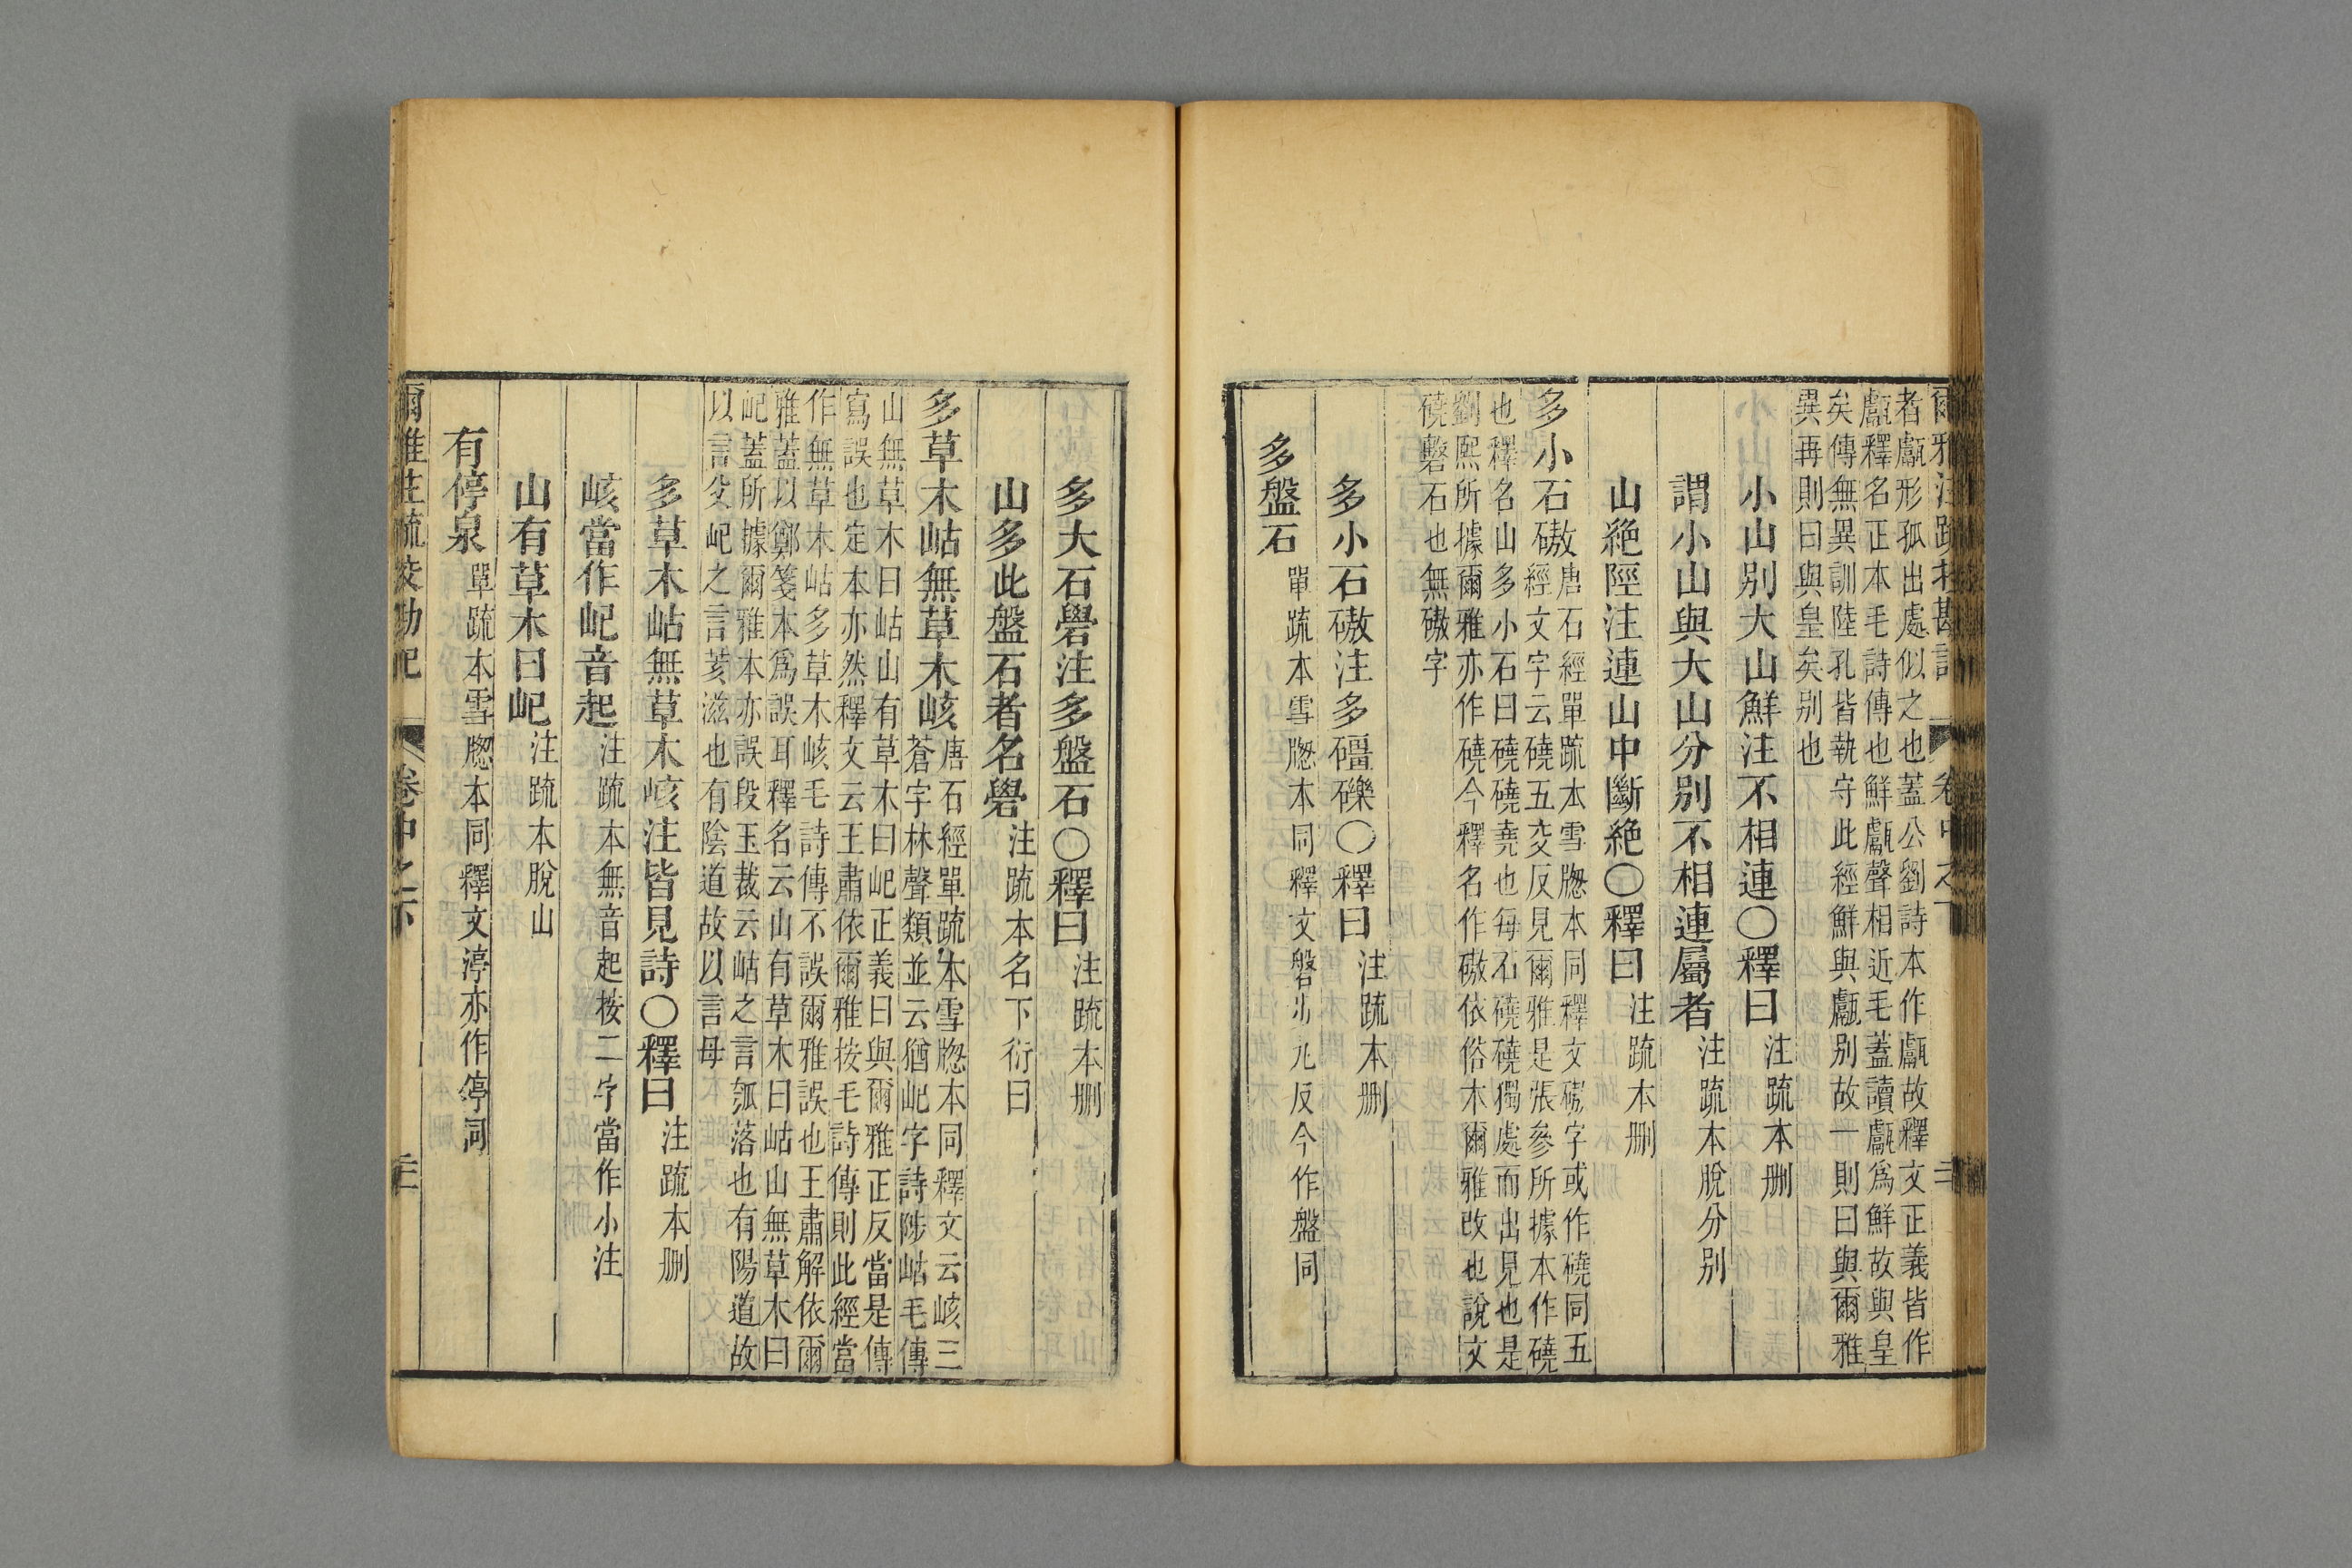 爾雅注疏挍勘記 卷中之下 三
者甗形孤出處似之也蓋公劉詩本作甗故釋文正義皆作
甗釋名正本毛詩傳也鮮甗聲相近毛蓋讀甗爲鮮故與皇
矣傳無異訓陸孔皆執守此經鮮與甗別故一則曰與爾雅
異再則曰與皇矣別也
小山別大山鮮注不相連○釋曰注疏本刪
謂小山與大山分別不相連屬者注疏本脫分別
山絕陘注連山中斷絕○釋曰注疏本刪
多小石磝唐石經單疏本雪牕本同釋文磝字或作磽同五
經文字云磽五交反見爾雅是張參所據本作磽
也釋名山多小石曰磽磽堯也每石磽磽獨處而出見也是
劉熙所據爾雅亦作磽今釋名作磝依俗本爾雅改也說文
磽磬石也無磝字
多小石磝注多礓礫○釋曰注疏本刪
多盤石單疏本雪牕本同釋文磐步元反今作盤同
多大石礐注多盤石○釋曰注疏本刪
山多此盤石者名礐注疏本名下衍曰
多草木岵無草木峐唐石經單疏本雪牕本同釋文云峐三
蒼字林聲類並云猶屺字詩陟岵毛傳
山無草木曰岵山有草木曰屺正義曰與爾雅正反當是傳
寫誤也定本亦然釋文云王肅依爾雅按毛詩傳則此經當
作無草木岵多草木峐毛詩傳不誤爾雅誤也王肅解依爾
雅蓋以鄭箋本爲誤耳釋名云山有草木曰岵山無草木曰
屺蓋所據爾雅本亦誤段玉裁云岵之言瓠落也有陽道故
以言父屺之言荄滋也有陰道故以言母
多草木岵無草木峐注皆見詩○釋曰注疏本刪
峐當作屺音起注疏本無音起按二字當作小注
山有草木曰屺注疏本脫山
有停泉單疏本雪牕本同釋文渟亦作停同
爾雅注疏挍勘記 卷中之下 三